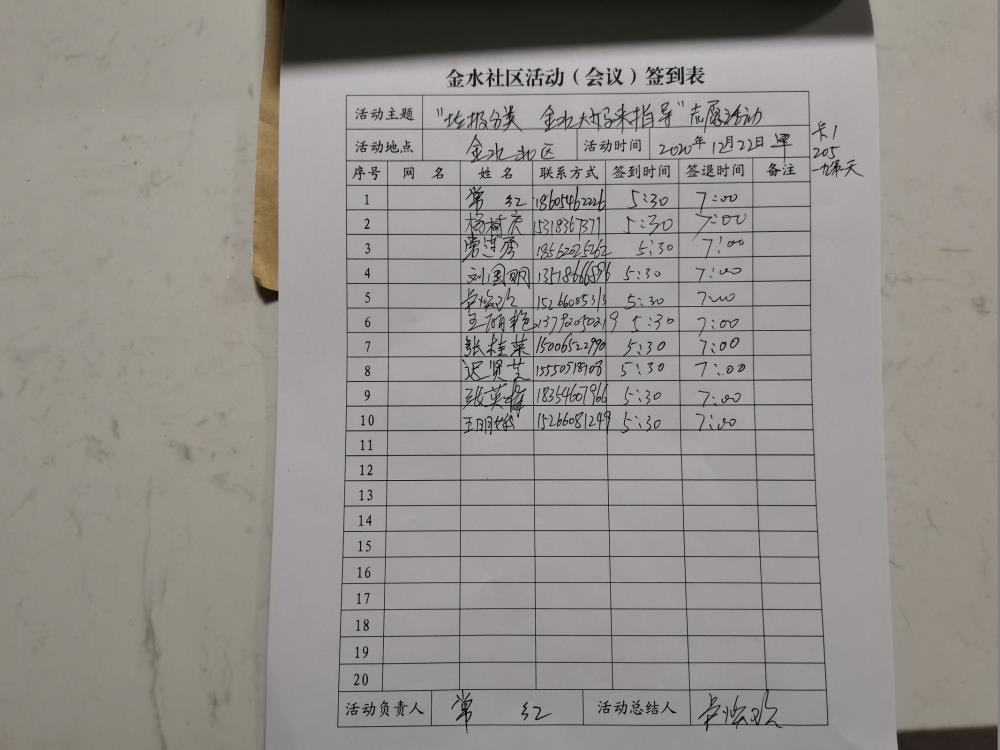 金水社区活动（会议）签到表
活动主题 "垃圾分类 金水大姐来指导"志愿活动
活动地点 金水社区 活动时间 2020年12月22日早
卡1
205
序号 网 名 姓 名 联系方式 签到时间 签退时间 备注
1 常 红 18605462226 5:30 7:00
2 杨树庆 5:30 7:00
3 常莲秀 18562025262 5:30 7:00
4 刘国明 5:30 7:00
5 15266085313 5:30 7:00
6 王丽艳 13792050219 5:30 7:00
7 张桂菜 15006522990 5:30 7:00
8 迟贤芝 5:30 7:00
9 张英梅 18354607966 5:30 7:00
10 王明娥 15266081249 5:30 7:00
11
12
13
14
15
16
17
18
19
20
活动负责人 常 红 活动总结人